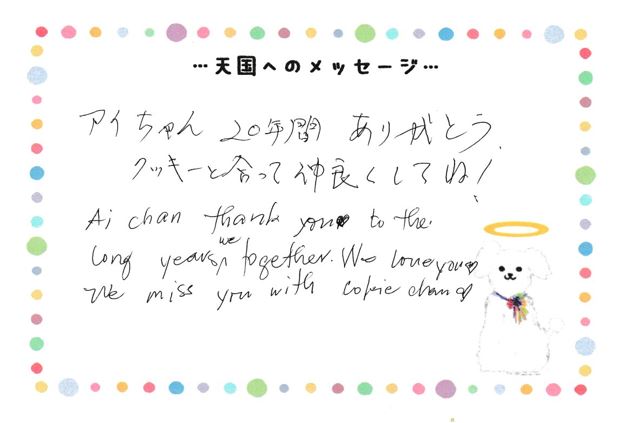 …天国へのメッセージ…
アイちゃん 20年間 ありがとう
クッキーと合って仲良くしてね!
Ai chan thank you♥ to the
long years, we together. We love you♡
We miss you with cokie chan♡